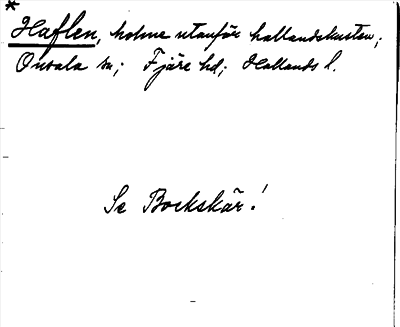 *
Haflen, holme utanför hallandskusten;
Onsala sn; Fjäre hd; Hallands l.
Se Bockskär!